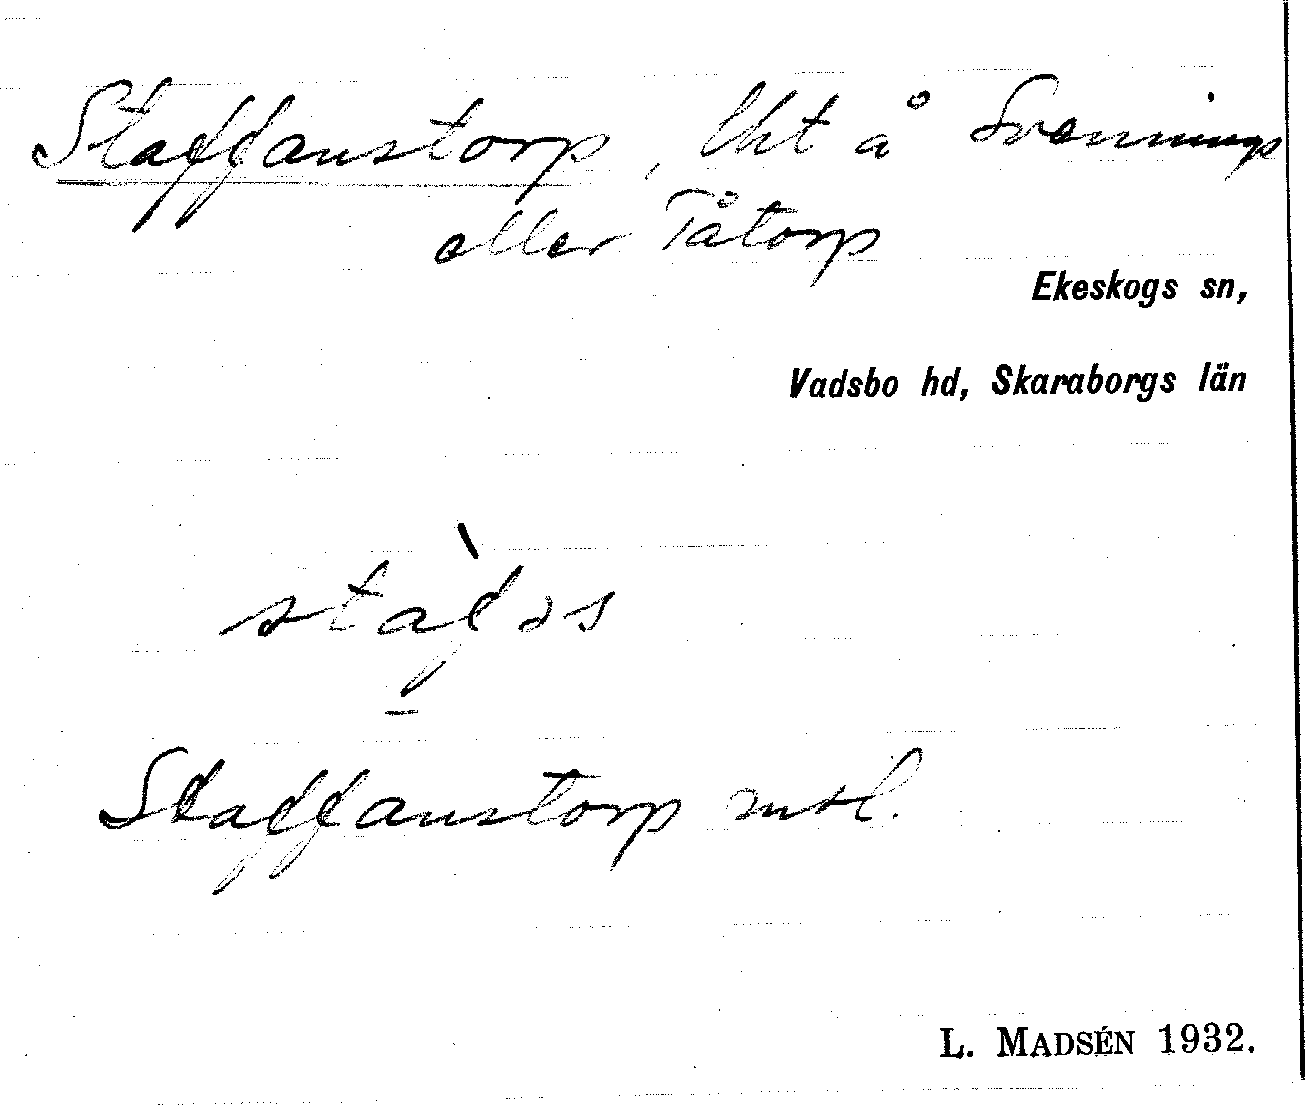 Staffanstorp, lht å Svennings
eller Tåtorp
Ekeskogs sn,
Vadsbo hd, Skaraborgs län
stàfəs
Staffanstorp msl.
L. MADSÉN 1932.